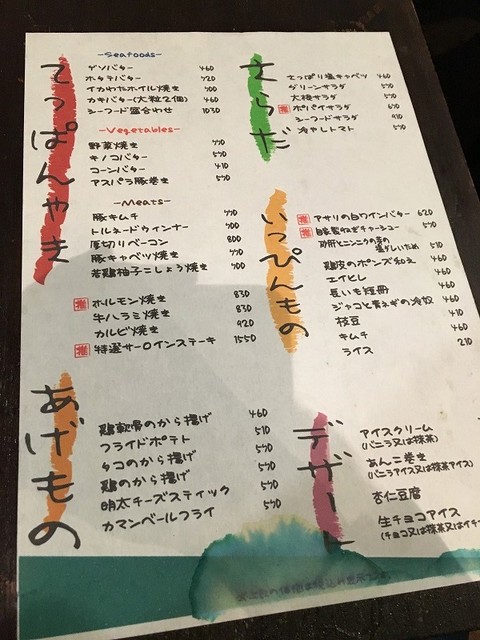 てっぱんやき
-Seafoods-
ゲソバター 460
ホタテバター 720
イカわたホイル焼き 700
カキバター(大粒2個) 460
シーフード盛合わせ 1030
-Vegetables-
野菜焼き 770
キノコバター 570
コーンバター 410
アスパラ豚巻き 570
-Meats-
豚キムチ 770
トルネードウィンナー 700
厚切りベーコン 800
豚キャベツ焼き 770
若鶏柚子こしょう焼き 700
推 ホルモン焼き 830
牛ハラミ焼き 830
カルビ焼き 920
推 特選サーロインステーキ 1550
あげもの
鶏軟骨のから揚げ 460
フライドポテト 510
タコのから揚げ 570
鶏のから揚げ 570
明太チーズスティック 570
カマンベールフライ 570
さらだ
さっぱり塩キャベツ 460
グリーンサラダ
大根サラダ
推 ポパイサラダ
シーフードサラダ 910
冷やしトマト
いっぴんもの
推 アサリの白ワインバター 620
推 自家製ねぎチャーシュー
砂肝とニンニクの芽の
塩だしいため 510
鶏皮のポンズ和え 460
エイヒレ 460
長いも短冊 460
ジャコと青ネギの冷奴 460
枝豆 410
キムチ 460
ライス 210
デザート
アイスクリーム
(バニラ又は抹茶)
あんこ巻き
(バニラアイス又は抹茶アイス)
杏仁豆腐
生チョコアイス
(チョコ又は抹茶又はイチ